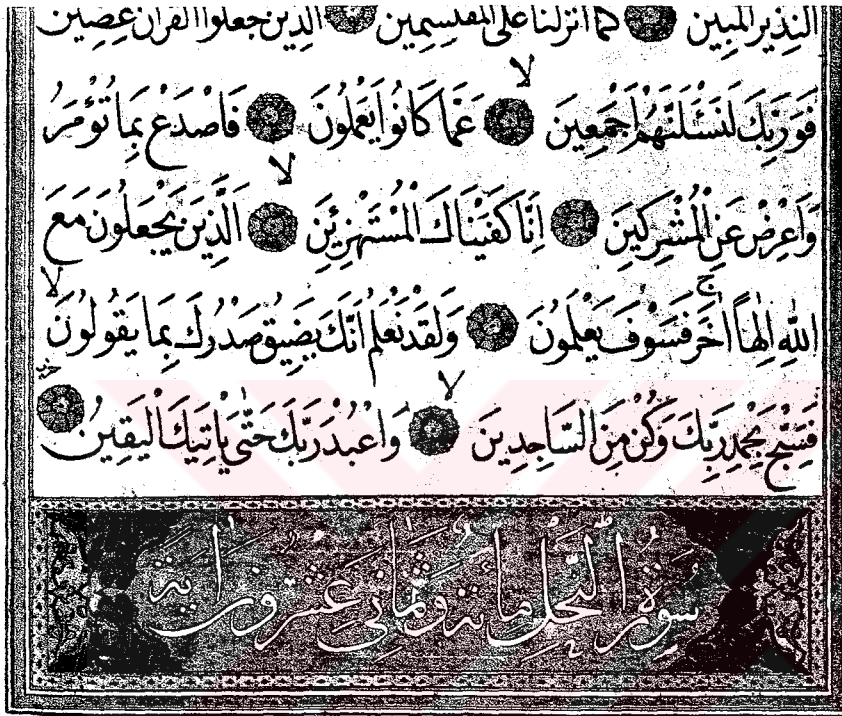 النَّذِيرُ الْمُبِينُ كَمَا أَنْزَلْنَا عَلَى الْمُقْتَسِمِينَ الَّذِينَ جَعَلُوا الْقُرْآنَ عِضِينَ
فَوَرَبِّكَ لَنَسْئَلَنَّهُمْ اَجْمَعِينَ لا عَمَّا كَانُوا يَعْمَلُونَ فَاصْدَعْ بِمَا تُؤْمَرُ
وَاَعْرِضْ عَنِ الْمُشْرِكِينَ اِنَّا كَفَيْنَاكَ الْمُسْتَهْزِئِينَ لا الَّذِينَ يَجْعَلُونَ مَعَ
اللّٰهِ اِلٰهاً اٰخَرَ ج فَسَوْفَ يَعْلَمُونَ وَلَقَدْ نَعْلَمُ اَنَّكَ يَضِيقُ صَدْرُكَ بِمَا يَقُولُونَ لا
فَسَبِّحْ بِحَمْدِ رَبِّكَ وَكُنْ مِنَ السَّاجِدِينَ لا وَاعْبُدْ رَبَّكَ حَتّٰى يَاْتِيَكَ الْيَقِينُ
سورة النحل مائة وثماني عشرون اية